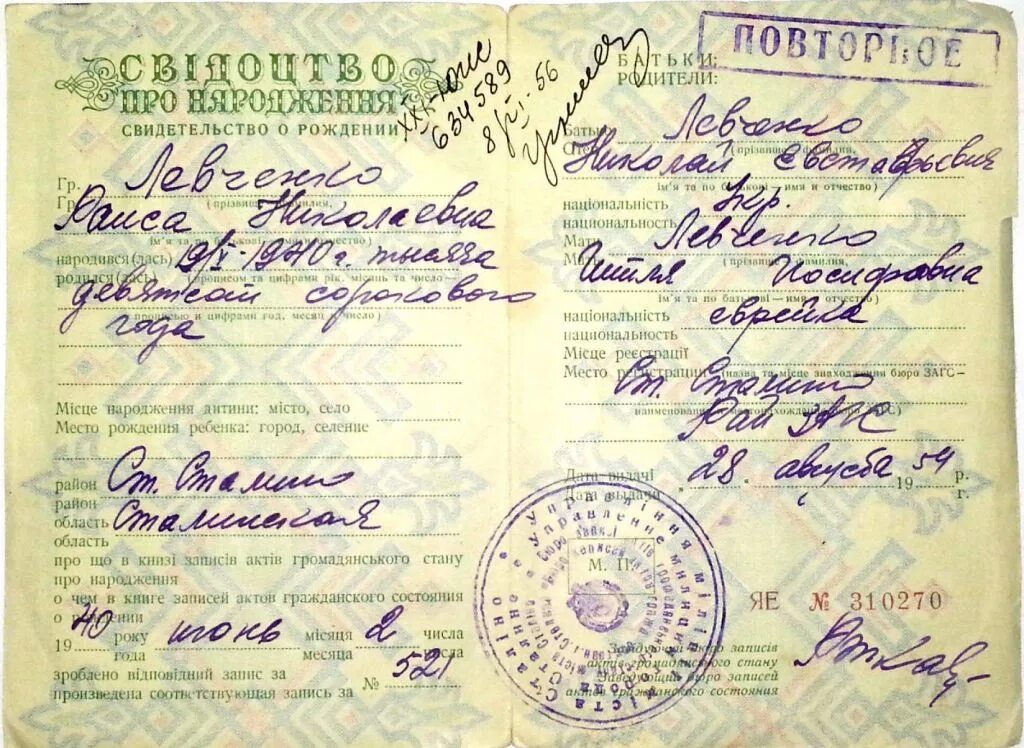 СВІДОЦТВО
ПРО НАРОДЖЕННЯ
СВИДЕТЕЛЬСТВО О РОЖДЕНИИ
Гр. Левченко
Гр. (прізвище, фамилия,
Раиса Николаевна
ім'я та по батькові — имя и отчество)
народився (лась) 19/V-1940 г. тысяча
родился (ась) (прописом та цифрами рік, місяць та число —
девятсот сорокового
прописью и цифрами год, месяц и число)
года
Місце народження дитини: місто, село
Место рождения ребенка: город, селение
район Ст. Сталино
район
область Сталинская
область
про що в книзі записів актів громадянського стану
про народження
о чем в книге записей актов гражданского состояния
о рождении
19 40 року июнь місяця 2 числа
года месяца числа
зроблено відповідний запис за № 521
произведена соответствующая запись за
634589
56
ПОВТОРНОЕ
БАТЬКИ:
РОДИТЕЛИ:
Батько Левченко
Отец (прізвище, фамилия,
Николай Евстафьевич
ім'я та по батькові — имя и отчество)
національність Укр.
национальность
Мати Левченко
Мать (прізвище, фамилия,
Иосифовна
ім'я та по батькові — имя и отчество)
національність еврейка
национальность
Місце реєстрації
Место регистрации (назва та місце знаходження бюро ЗАГС —
Ст. Сталино
наименование и местонахождение бюро ЗАГС)
Рай ЗАГС
Дата видачі „28 августа 1954 р.
Дата выдачи г.
М. П.
ЯЕ № 310270
Завідуючий бюро записів
актів громадянського стану
Заведующий бюро записей
актов гражданского состояния